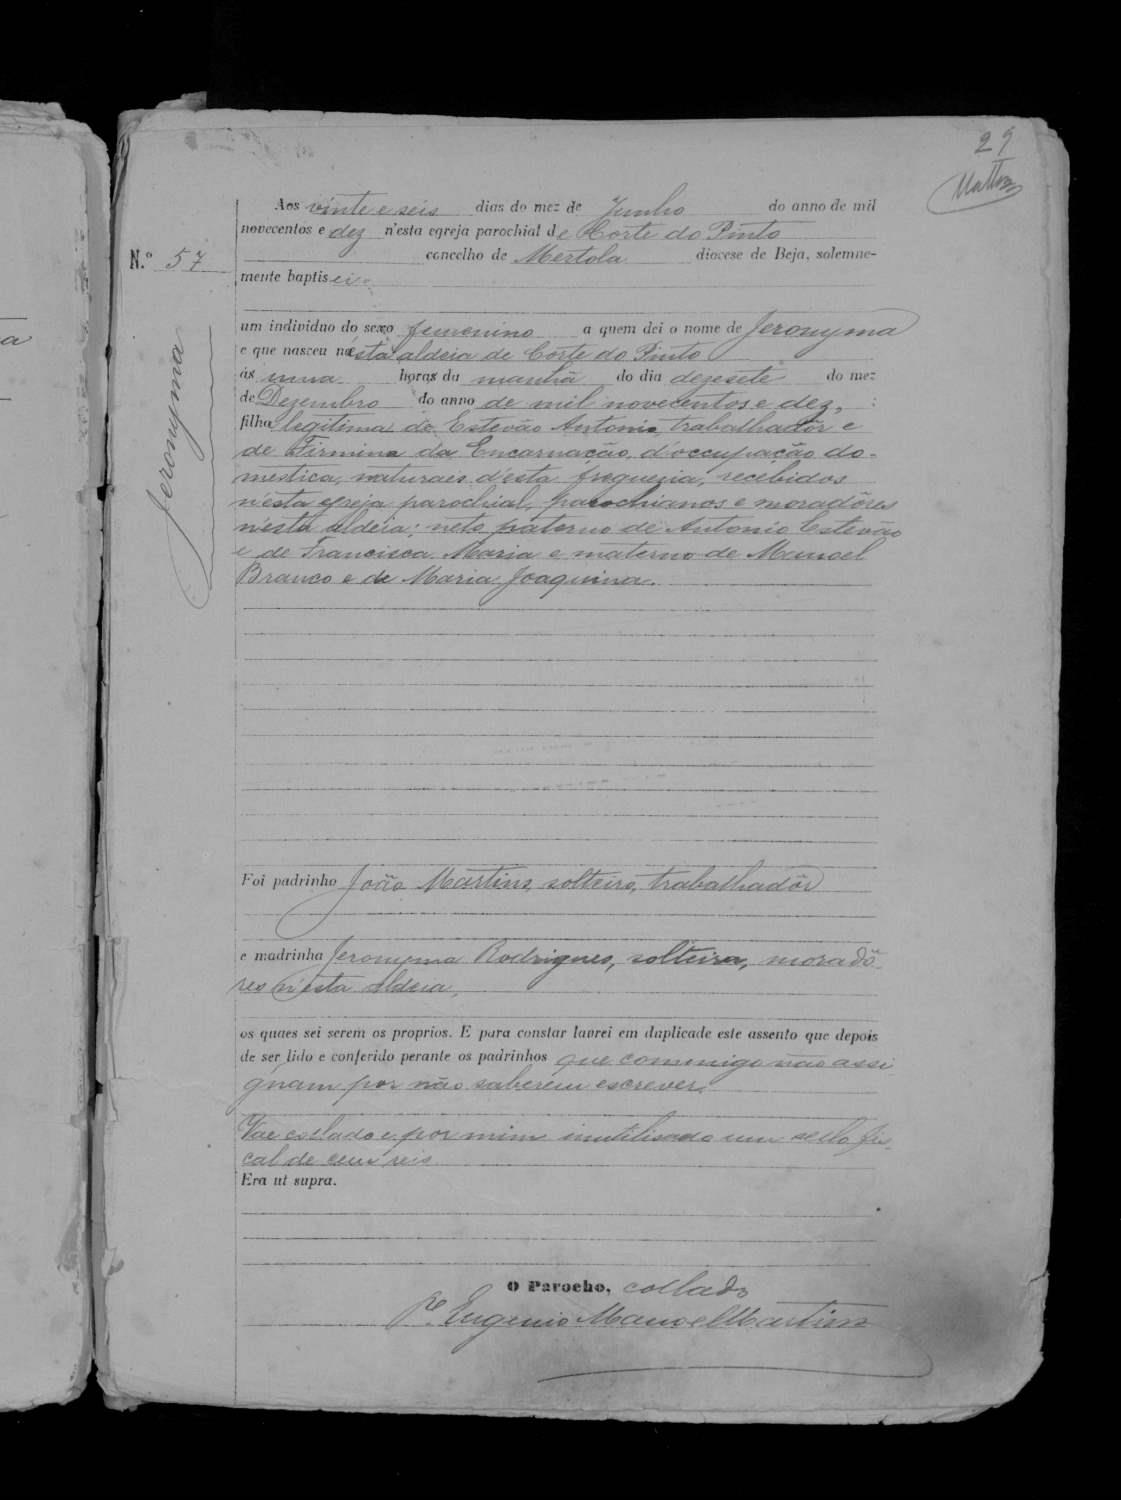 29
Mattos
Aos vinte e seis dias do mez de Junho do anno de mil
novecentos e dez n'esta egreja parochial de Corte do Pinto
N.º 57 concelho de Mertola diocese de Beja, solemne-
mente baptisei
um individuo do sexo femenino a quem dei o nome de Jeronyma
e que nasceu nesta aldeia de Corte do Pinto
ás uma horas da manhã do dia dezesete do mez
de Dezembro do anno de mil novecentos e dez,
filha legitima de Estevão Antonio, trabalhadôr e
de Firmina da Encarnação, d'occupação do-
mestica, naturaes d'esta freguezia, recebidos
n'esta egreja parochial, parochianos e moradôres
n'esta aldeia; neto paterno de Antonio Estevão
e de Francisca Maria e materno de Manoel
Branco e de Maria Joaquina.
Jeronyma
Foi padrinho João Martins, solteiro, trabalhadôr
e madrinha Jeronyma Rodrigues, solteira, moradô-
res n'esta aldeia,
os quaes sei serem os proprios. E para constar lavrei em duplicado este assento que depois
de ser lido e conferido perante os padrinhos que commigo não assi-
gnam por não saberem escrever.
Vae collado e por mim inutilisado um sello fis-
cal de cem reis.
Era ut supra.
O Parocho, collado
P.e Eugenio Manoel Martins